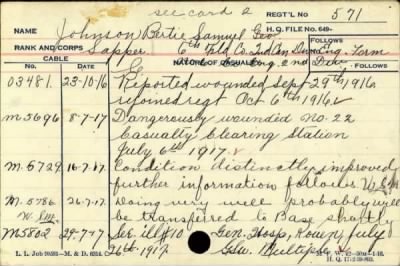 see card 2
REGT'L No 571
NAME Johnson Bertie Samuel Geo
H.Q. FILE No. 649-
RANK AND CORPS Sapper 6th Fld Co. 2nd Can Div Eng. Form
FOLLOWS
CABLE
NATURE OF CASUALTY
No. DATE
FOLLOWS
03481. 23-10-16 Reported wounded Sept 29th 1916
rejoined regt Oct 6th 1916
M3696 8-7-17 Dangerously wounded No. 22
Casualty Clearing Station
July 6th 1917.
M.5729 16-7-17. Condition distinctly improved
further information follows
M.5786 26-7-17 Doing very well probably will
be transferred to Base shortly
M5802 29-7-17 Ser. ill #10 Gen. Hosp. Rouen July
26th 1917. GSW Multiple
L. L. Job 50593—M. & D. 6354.
H. Q. 1772-39-893.